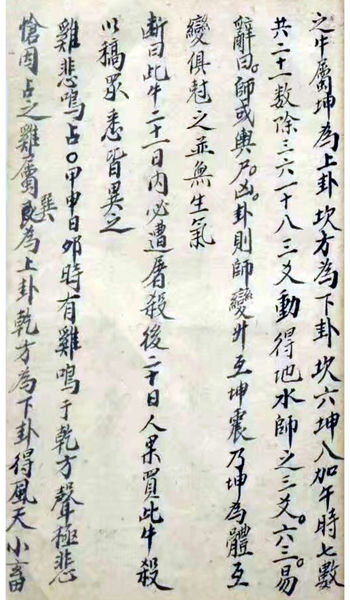 之牛屬坤為上卦坎方為下卦坎六坤八加午時七數
共二十一數除三六一十八三爻動得地水師之三爻。六三。易
辭曰。師或輿尸。凶。卦則師變升互坤震乃坤為體互
變俱尅之並無生氣
斷曰此牛二十一日內必遭屠殺後二十日人果買此牛殺
以稿眾悉皆異之
雞悲鳴占〇甲申日卯時有雞鳴于乾方聲極悲
愴因占之雞屬艮巽為上卦乾方為下卦得風天小畜